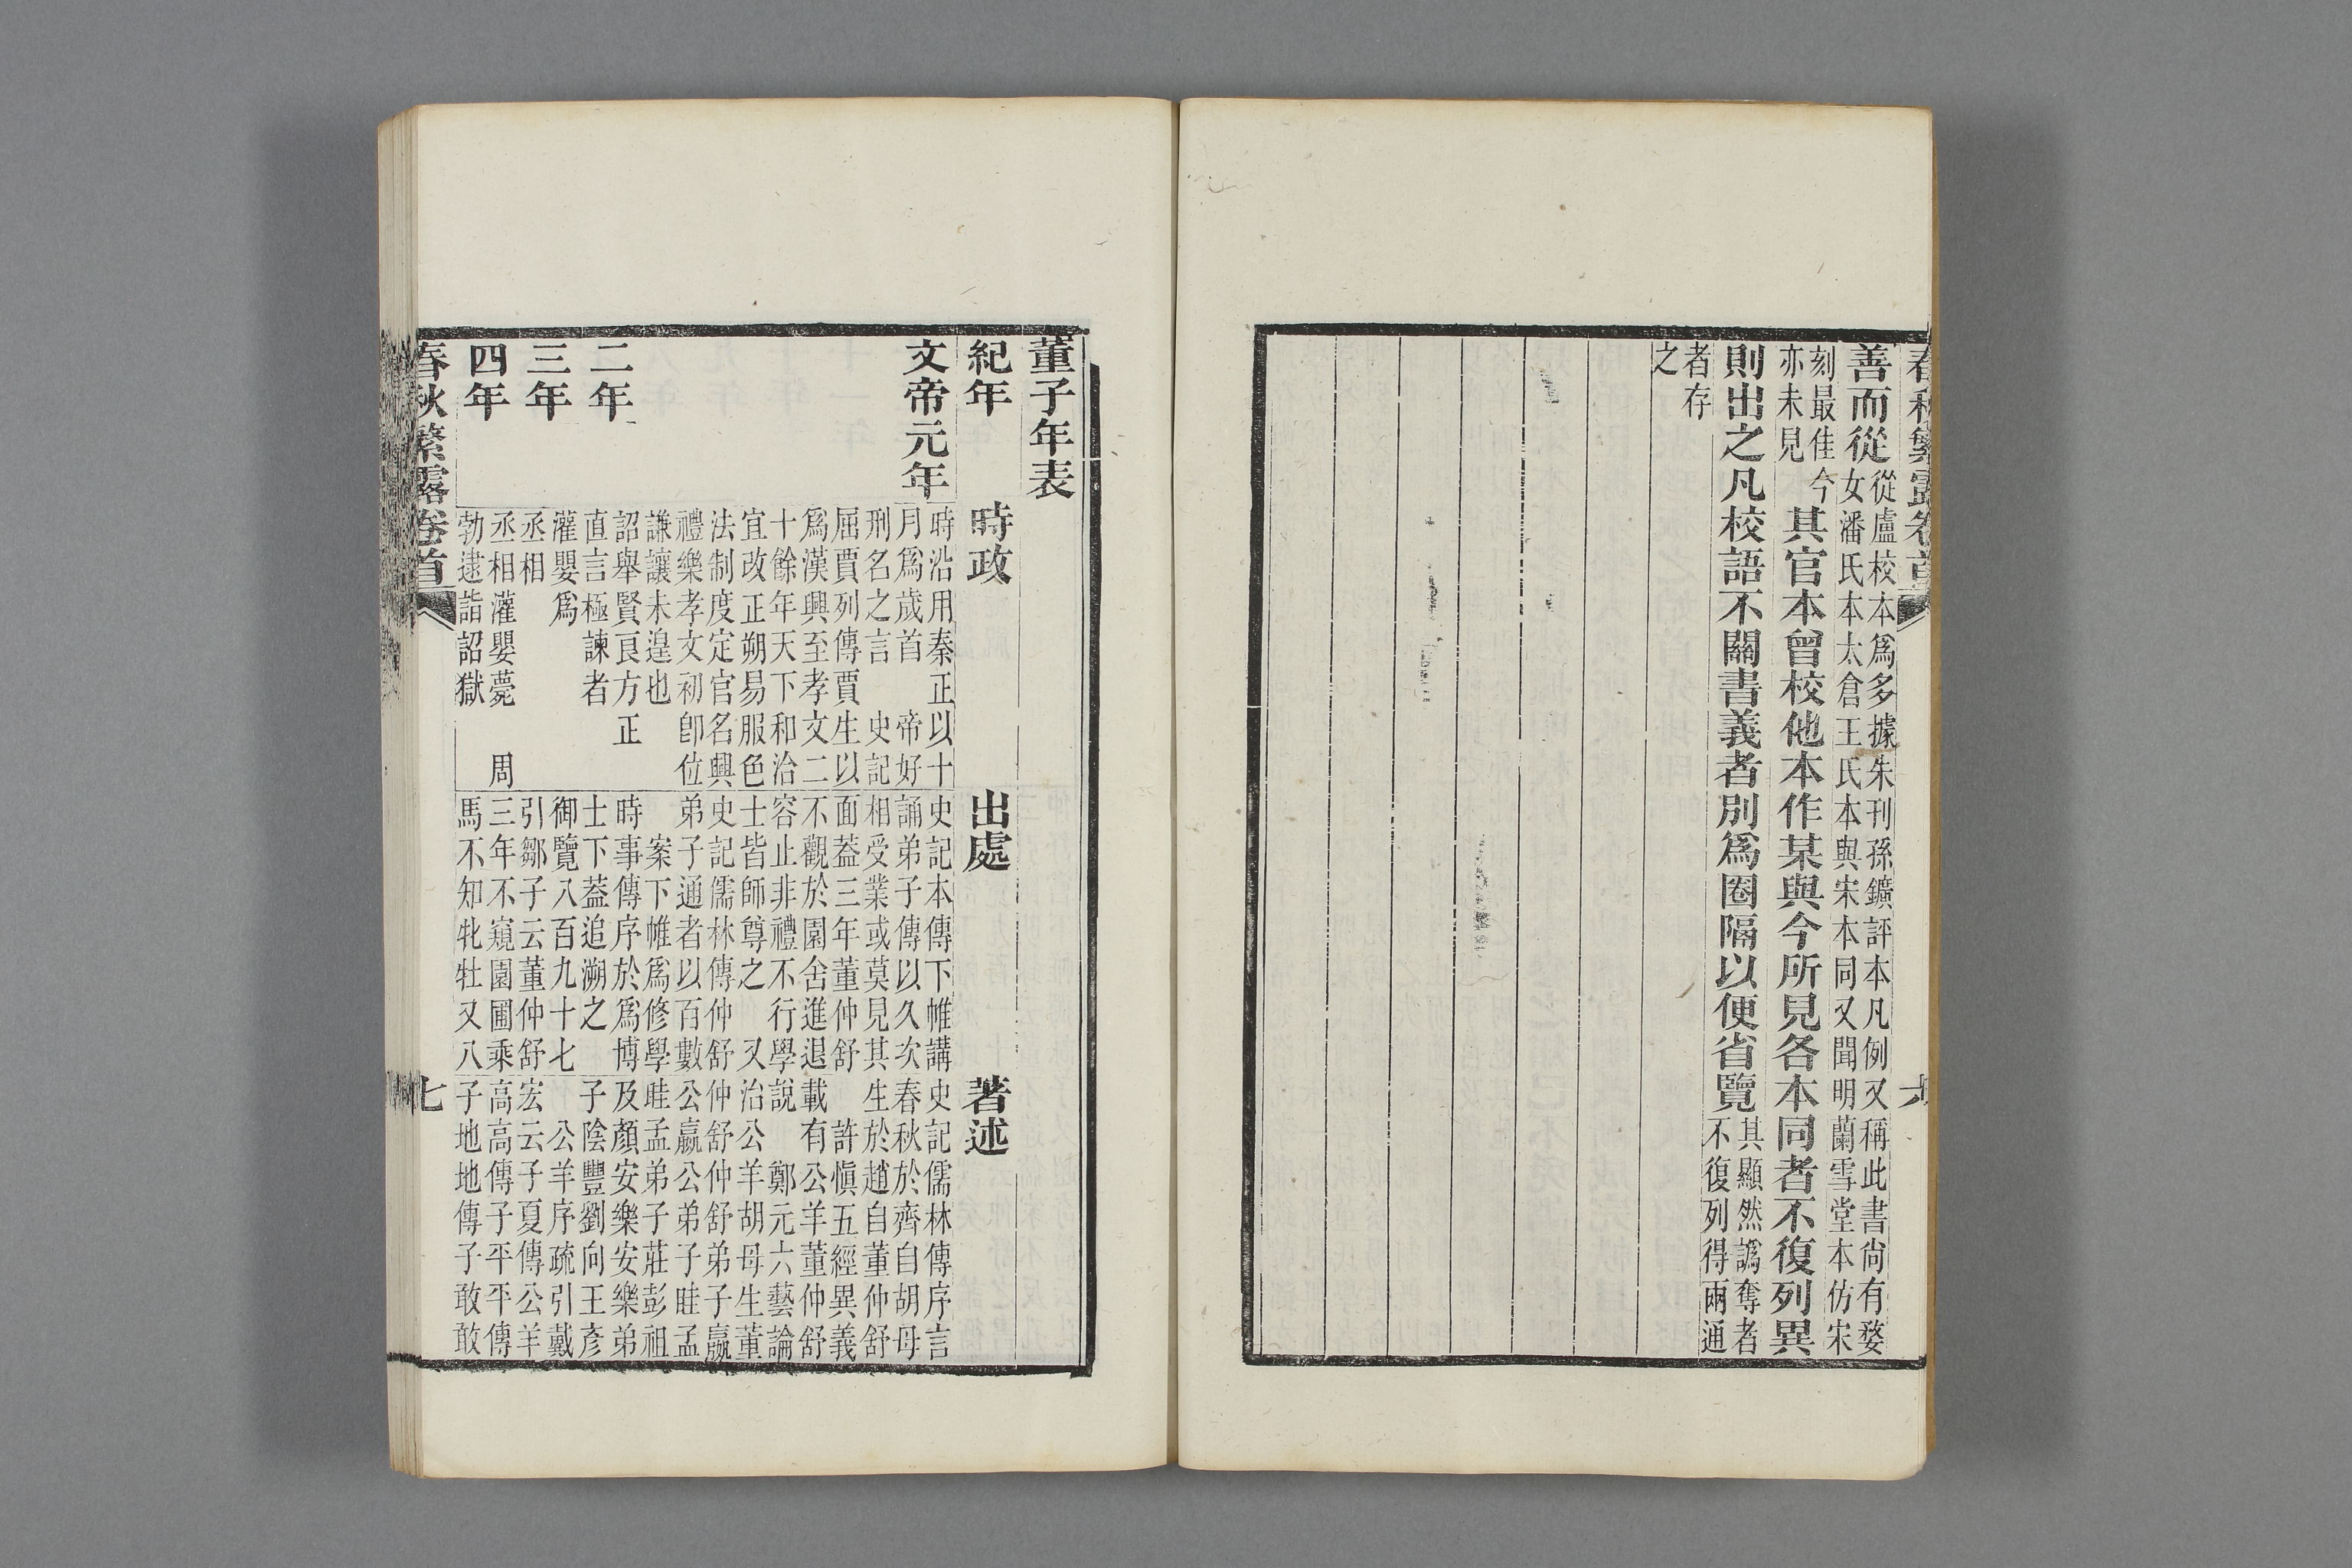 春秋繁露卷首
六
善而從
從盧校本爲多據朱刊孫鑛評本凡例又稱此書尚有婺
女潘氏本太倉王氏本與宋本同又聞明蘭雪堂本仿宋
刻最佳今
亦未見
其官本曾校他本作某與今所見各本同者不復列異
則出之凡校語不關書義者別爲圈隔以便省覽
其顯然譌奪者
不復列得兩通
者存
之
董子年表
紀年
時政
出處
著述
文帝元年
時沿用秦正以十
月爲歲首 帝好
刑名之言 史記
屈賈列傳賈生以
爲漢興至孝文二
十餘年天下和洽
宜改正朔易服色
法制度定官名興
禮樂孝文初卽位
謙讓未遑也
史記本傳下帷講
誦弟子傳以久次
相受業或莫見其
面蓋三年董仲舒
不觀於園舍進退
容止非禮不行學
士皆師尊之 又
史記儒林傳仲舒
弟子通者以百數
案下帷爲修學
時事傳序於爲博
士下蓋追溯之
御覽八百九十七
引鄒子云董仲舒
三年不窺園圃乘
馬不知牝牡又八
史記儒林傳序言
春秋於齊自胡母
生於趙自董仲舒
許慎五經異義
載有公羊董仲舒
說 鄭元六藝論
治公羊胡母生董
仲舒仲舒弟子嬴
公嬴公弟子眭孟
眭孟弟子莊彭祖
及顏安樂安樂弟
子陰豐劉向王彥
公羊序疏引戴
宏云子夏傳公羊
高高傳子平平傳
子地地傳子敢敢
二年
詔舉賢良方正
直言極諫者
三年
灌嬰爲
丞相
四年
丞相灌嬰薨 周
勃逮詣詔獄
春秋繁露卷首
七